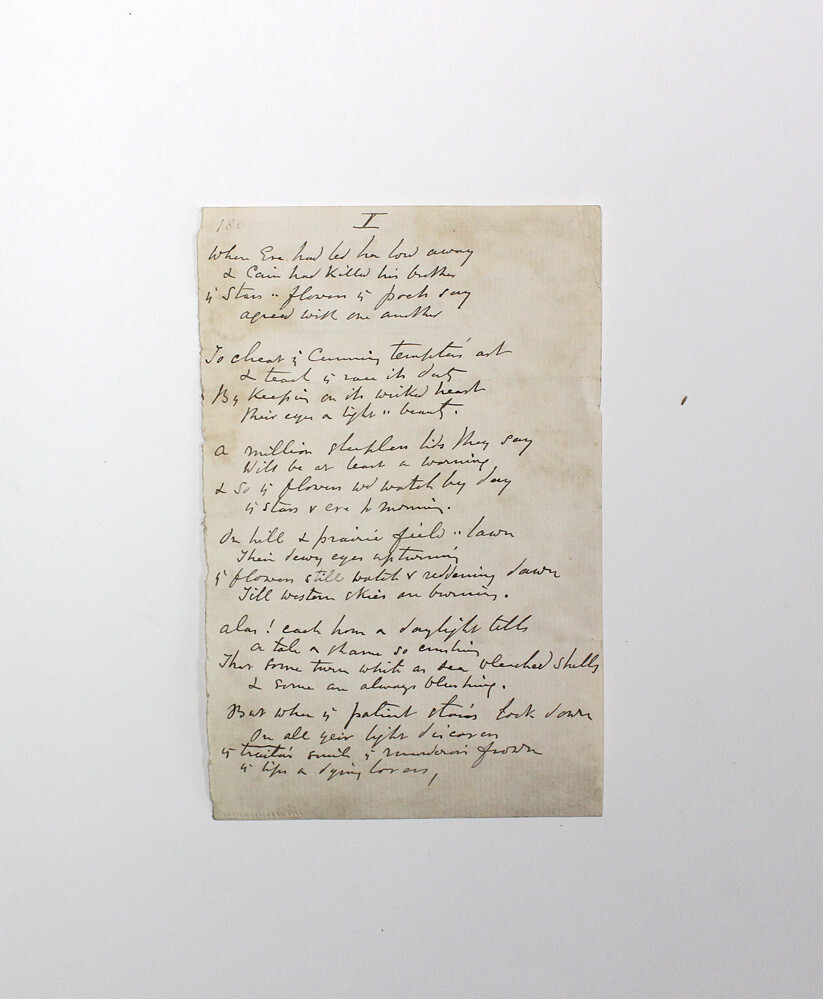 180
I
When Eve had led her lord away
& Cain had killed his brother
y Stars .. flowers y poets say
agreed with one another
To cheat y Cunning tempter's art
& teach y race its duty
By Keeping on its wicked heart
Their eyes a light .. beauty.
A million sleepless lids they say
Will be at least a warning
& So y flowers wd watch by day
y stars & eve to morning.
On hill & prairie field .. lawn
Their dewy eyes upturning
y flowers still watch & reddening dawn
Till western skies are burning.
alas! each hour a daylight tells
a tale a shame so crushing
That some turn white as sea bleached shells
& some are always blushing.
But when y patient stars look down
On all yeir light discovers
y traitor's smile y murderer's frown
y lips a dying lovers,